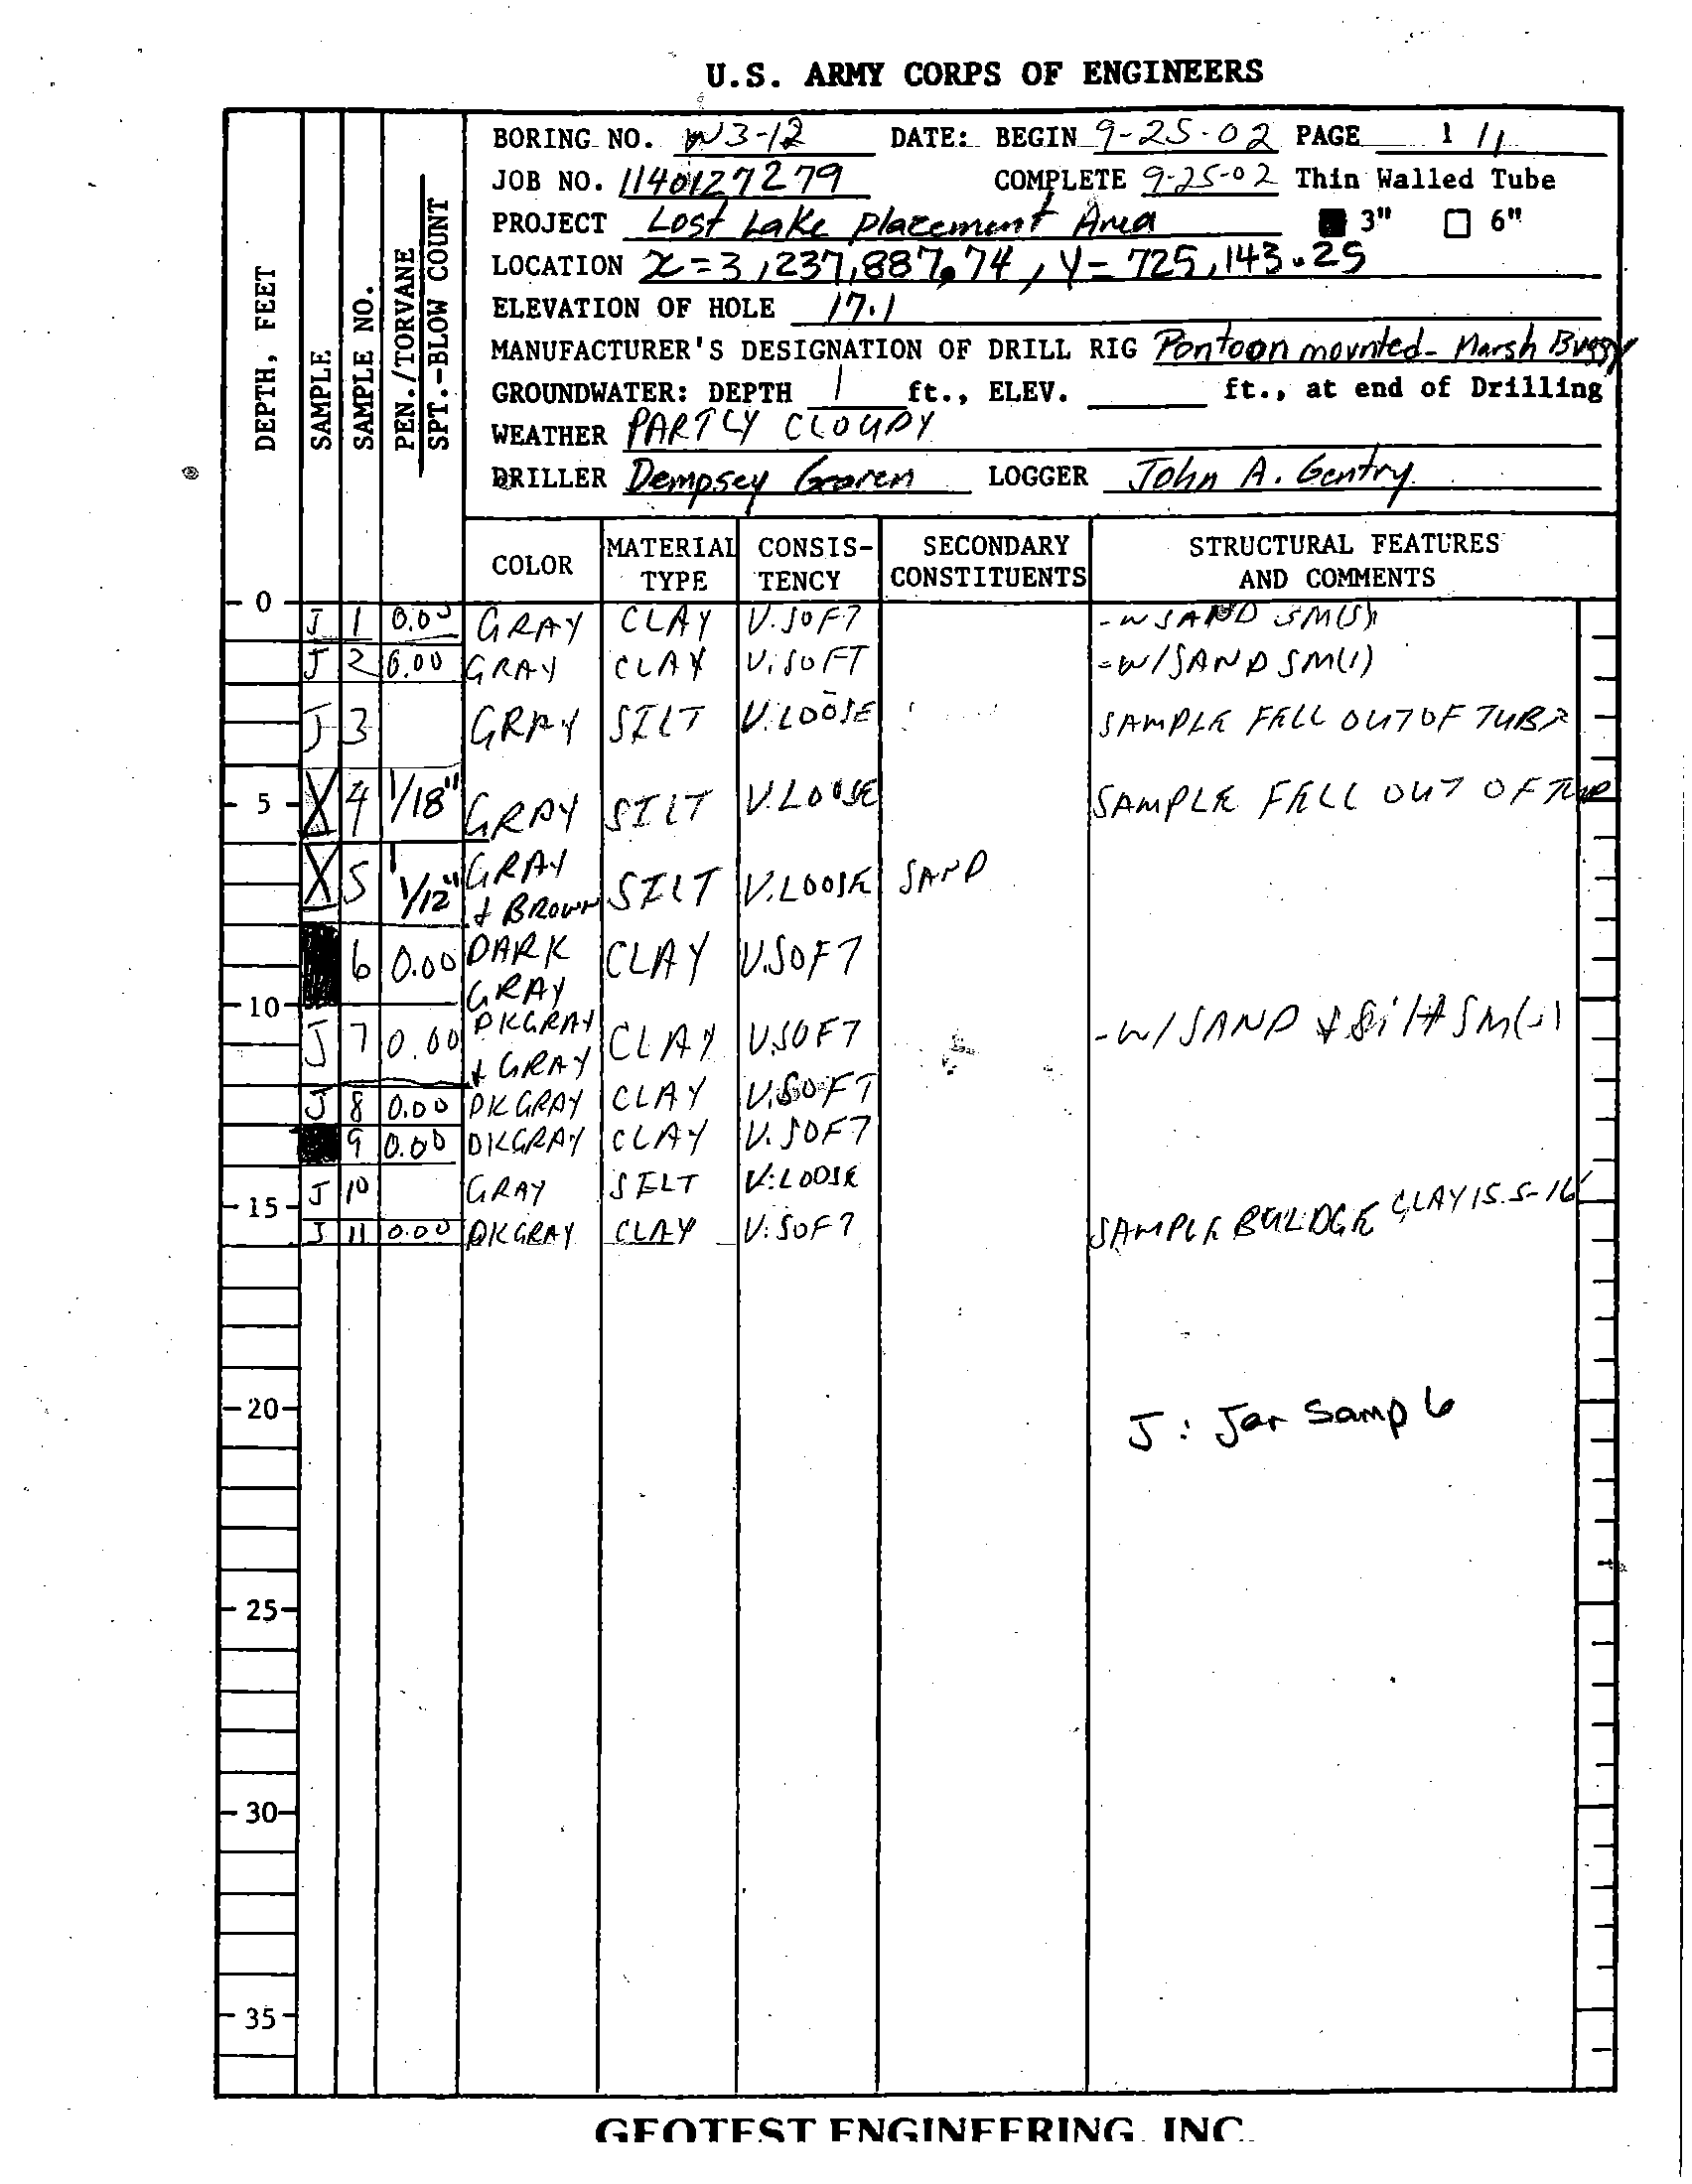 U.S. ARMY CORPS OF ENGINEERS
BORING NO. W3-12 DATE: BEGIN 9-25-02 PAGE 1 / 1
JOB NO. 1140127279 COMPLETE 9-25-02 Thin Walled Tube
PROJECT Lost Lake Placement Area 3" 6"
LOCATION X=3,237,887.74, Y= 725,143.25
ELEVATION OF HOLE 17.1
MANUFACTURER'S DESIGNATION OF DRILL RIG Pontoon mounted- Marsh Buggy
GROUNDWATER: DEPTH 1 ft., ELEV. ft., at end of Drilling
WEATHER PARTLY CLOUDY
DRILLER Dempsey LOGGER John A. Gentry
DEPTH, FEET
SAMPLE
SAMPLE NO.
PEN./TORVANE
SPT.-BLOW COUNT
COLOR MATERIAL TYPE CONSIS-TENCY SECONDARY CONSTITUENTS STRUCTURAL FEATURES AND COMMENTS
0
J 1 0.00 GRAY CLAY V.SOFT -W SAND SM(S)
J 2 0.00 GRAY CLAY V.SOFT -W/SAND SM(1)
J 3 GRAY SILT V.LOOSE SAMPLE FELL OUT OF TUBE
5 X 4 1/18" GRAY SILT V.LOOSE SAMPLE FELL OUT OF
X 5 1/12" GRAY & BROWN SILT V.LOOSE SAND
6 0.00 DARK GRAY CLAY V.SOFT
10
J 7 0.00 DKGRAY & GRAY CLAY V.SOFT -W/SAND & Silt SM
J 8 0.00 DKGRAY CLAY V.SOFT
9 0.00 DKGRAY CLAY V.SOFT
15 J 10 GRAY SILT V.LOOSE
J 11 0.00 DKGRAY CLAY V.SOFT SAMPLE BULDGE CLAY 15.5-16'
20
J: Jar Sample
25
30
35
GEOTEST ENGINEERING, INC.